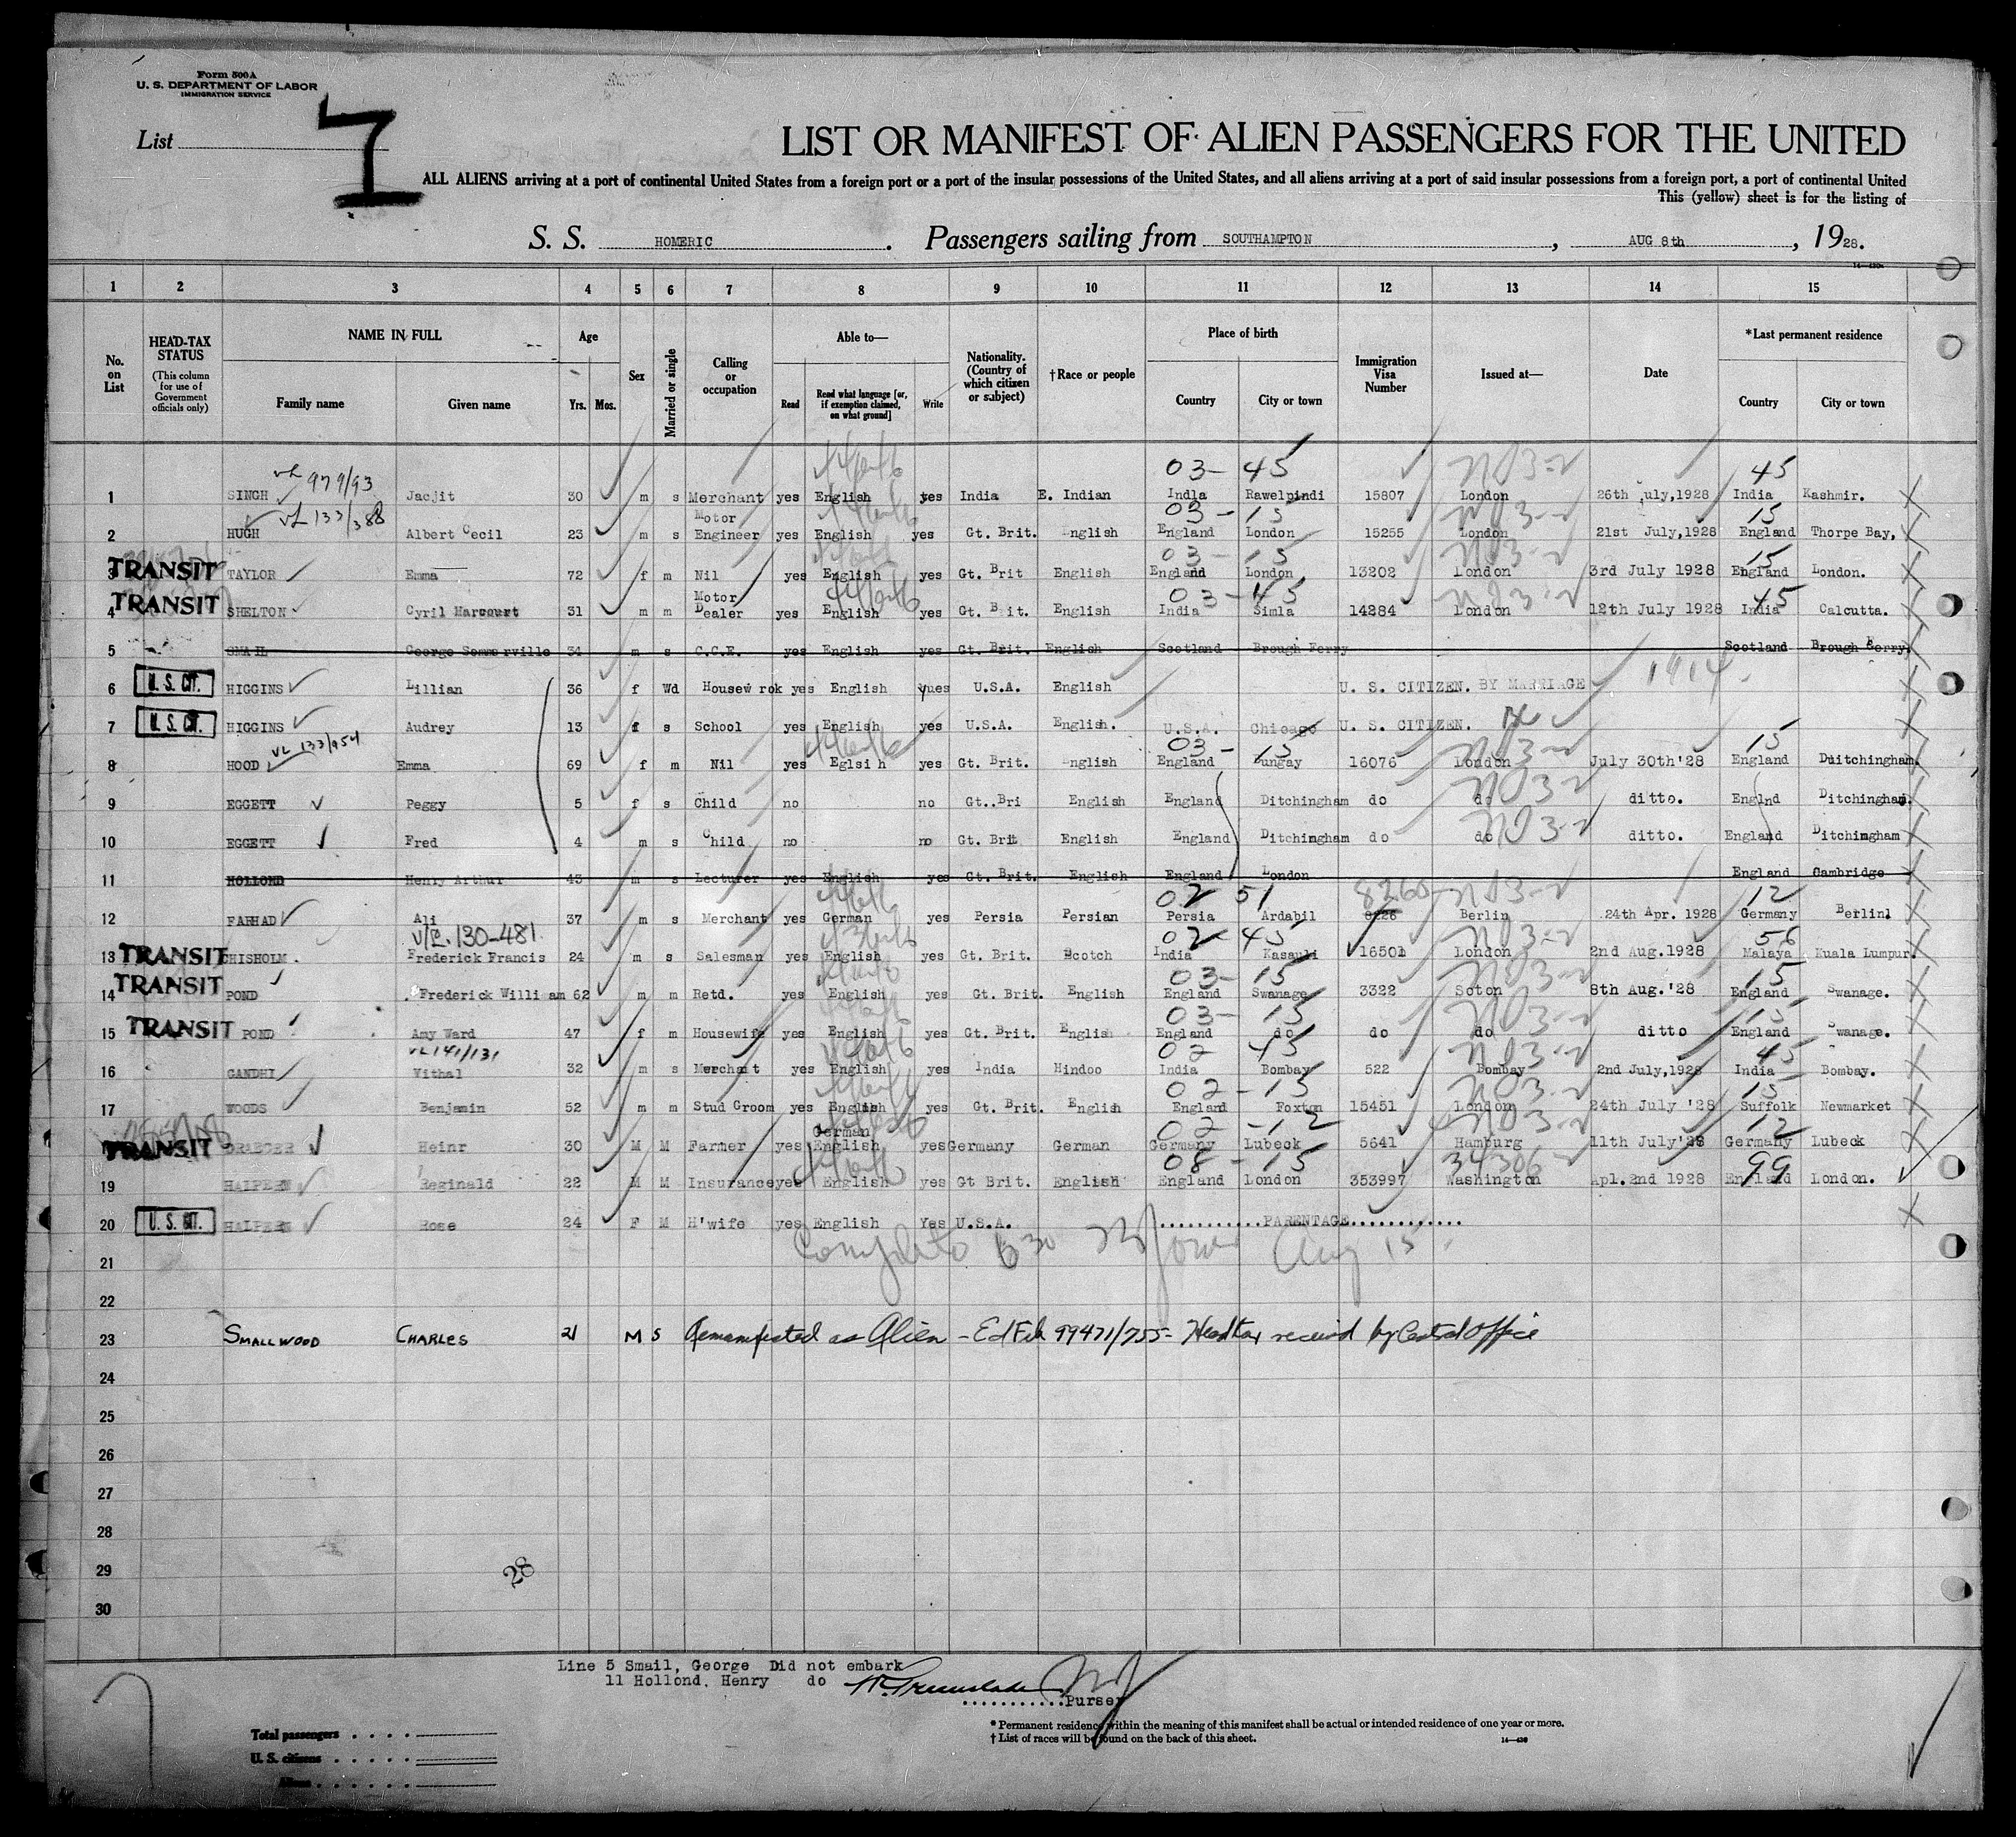 Form 500 A
U. S. DEPARTMENT OF LABOR
IMMIGRATION SERVICE
List
LIST OR MANIFEST OF ALIEN PASSENGERS FOR THE UNITED
ALL ALIENS arriving at a port of continental United States from a foreign port or a port of the insular possessions of the United States, and all aliens arriving at a port of said insular possessions from a foreign port, a port of continental United
This (yellow) sheet is for the listing of
S. S. HOMERIC. Passengers sailing from SOUTHAMPTON, AUG 8th, 1928.
1 2 3 4 5 6 7 8 9 10 11 12 13 14 15
No. on List HEAD-TAX STATUS (This column for use of Government officials only) NAME IN FULL Family name Given name Age Yrs. Mos. Sex Married or single Calling or occupation Able to— Read Read what language [or, if exemption claimed, on what ground] Write Nationality. (Country of which citizen or subject) †Race or people Place of birth Country City or town Immigration Visa Number Issued at— Date *Last permanent residence Country City or town
979/93 03- 45 45
1 SINGH Jacjit 30 m s Merchant yes English yes India E. Indian India Rawelpindi 15807 London 26th July,1928 India Kashmir.
133/388 Motor 03- 15 15
2 HUGH Albert Cecil 23 m s Engineer yes English yes Gt. Brit. English England London 15255 London 21st July,1928 England Thorpe Bay,
03- 15 15
TRANSIT 3 TAYLOR Emma 72 f m Nil yes English yes Gt. Brit English England London 13202 London 3rd July 1928 England London.
Motor 03-45 45
TRANSIT 4 SHELTON Cyril Harcourt 31 m m Dealer yes English yes Gt. Brit. English India Simla 14284 London 12th July 1928 India Calcutta.
5 SMAIL George Sommerville 34 m s C.C.E. yes English yes Gt. Brit. English Scotland Brough Ferry Scotland Brough Ferry
6 U. S. CIT. HIGGINS Lillian 36 f Wd Housew rok yes English yues U.S.A. English U. S. CITIZEN. BY MARRIAGE 1914.
7 U. S. CIT. HIGGINS Audrey 13 f s School yes English yes U.S.A. English. U.S.A. Chicago U. S. CITIZEN.
VL 133/954 03- 15 15
8 HOOD Emma 69 f m Nil yes Eglsi h yes Gt. Brit. English England Bungay 16076 London July 30th'28 England Duitchingham.
9 EGGETT Peggy 5 f s Child no no Gt..Bri English England Ditchingham do do ditto. Englnd Ditchingham.
10 EGGETT Fred 4 m s Child no no Gt. Brit English England Ditchingham do do ditto. England Ditchingham
11 HOLLOND Henry Arthur 43 m s Lecturer yes English yes Gt. Brit. English England London England Cambridge
02 51 8260 12
12 FARHAD Ali 37 m s Merchant yes German yes Persia Persian Persia Ardabil 8226 Berlin 24th Apr. 1928 Germany Berlin
130-481 02-45 56
TRANSIT 13 CHISHOLM. Frederick Francis 24 m s Salesman yes English yes Gt. Brit. Scotch India Kasauli 16501 London 2nd Aug.1928 Malaya Kuala Lumpur.
03- 15 15
TRANSIT 14 POND Frederick Willi am 62 m m Retd. yes English yes Gt. Brit. English England Swanage 3322 Soton 8th Aug.'28 England Swanage.
03- 15 15
TRANSIT 15 POND Amy Ward 47 f m Housewife yes English yes Gt. Brit. English England do do do ditto England Swanage.
VL 141/131 02 45 45
16 GANDHI Vithal 32 m s Merchant yes English yes India Hindoo India Bombay 522 Bombay 2nd July,1928 India Bombay.
02-15 15
17 WOODS Benjamin 52 m m Stud Groom yes English yes Gt. Brit. English England Foxton 15451 London 24th July '28 Suffolk Newmarket
German 02-12 12
TRANSIT DRAEGER Heinr 30 M M Farmer yes English yes Germany German Germany Lubeck 5641 Hamburg 11th July'28 Germany Lubeck
08-15 34306 99
19 HALPERN Reginald 22 M M Insurance yes English yes Gt Brit. English England London 353997 Washington Apl.2nd 1928 England London.
20 U. S. CIT. HALPERN Rose 24 F M H'wife yes English Yes U.S.A. ............PARENTAGE............
Aug 15
21
22
23 SMALLWOOD CHARLES 21 M S Remanifested as Alien - Ed Feh 99471/755 - Headtax received by Central Office
24
25
26
27
28
29
28
30
Line 5 Smail, George Did not embark
11 Hollond. Henry do
...........Purser
Total passengers . . . .
U. S. citizens . . . . .
Aliens . . . . . .
* Permanent residence within the meaning of this manifest shall be actual or intended residence of one year or more.
† List of races will be found on the back of this sheet.
14—430